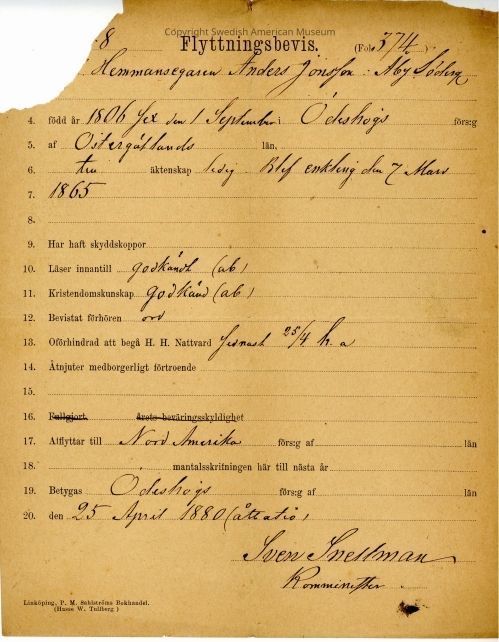 Copyright Swedish American Museum
8 Flyttningsbevis. (Fol. 374)
Hemmansegaren Anders Jonsson Åby Södra
4. född år 1806 sex den 1 September i Ödeshögs förs:g
5. af Östergötlands län,
6. tro äktenskap ledig. Blef enkling den 7 Mars
7. 1865
8.
9. Har haft skyddskoppor
10. Läser innantill godkändt (ab)
11. Kristendomskunskap godkänd (ab)
12. Bevistat förhören ord
13. Oförhindrad att begå H. H. Nattvard senast 25/4 h. a
14. Åtnjuter medborgerligt förtroende
15.
16. Fullgjort årets beväringsskyldighet
17. Afflyttar till Nord Amerika förs:g af län
18. mantalsskrifningen här till nästa år
19. Betygas Ödeshögs förs:g af län
20. den 25 April 1880 (åttatio)
Sven Snellman
Komminister
Linköping, P. M. Sahlströms Bokhandel.
(Hasse W. Tullberg)